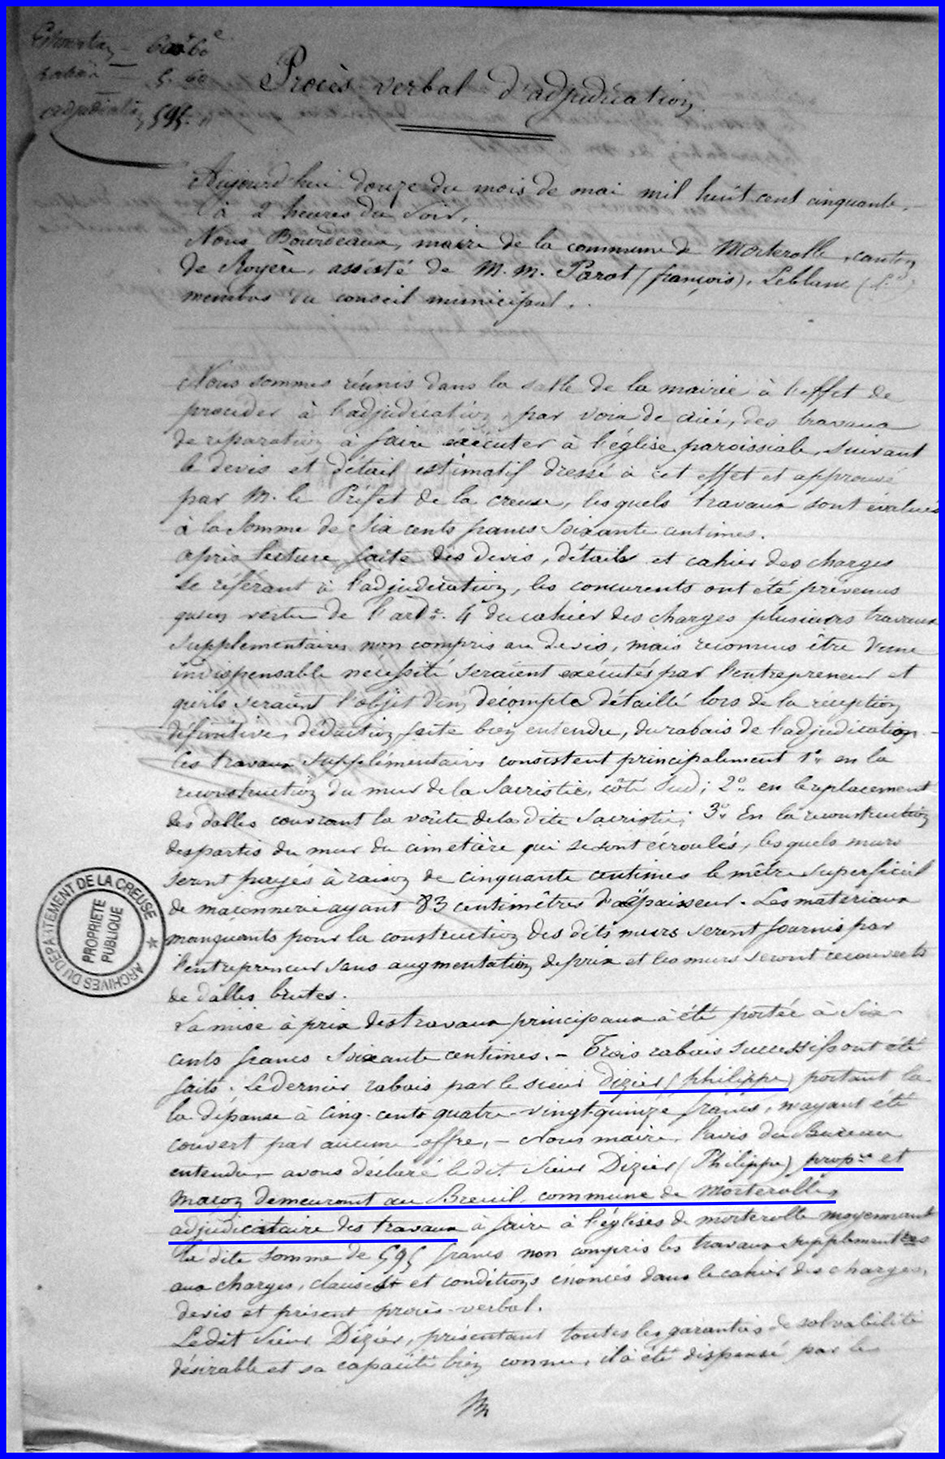 Estimation — 600f 60c
rabais — 5. 60
adjudication 595. "
Procès verbal d'adjudication
Aujourd'hui douze du mois de mai mil huit cent cinquante,
à 2 heures du soir,
Nous Bourdeaux, maire de la commune de Morterolle, canton
de Royère, assisté de M. M. Parot (françois), Leblanc
membres du conseil municipal.
Nous sommes réunis dans la salle de la mairie à l'effet de
procéder à l'adjudication, par voix de criée, des travaux
de réparation à faire exécuter à l'église paroissiale, suivant
le devis et détail estimatif dressé à cet effet et approuvé
par M. le Préfet de la creuse, lesquels travaux sont évalués
à la somme de six cents francs soixante centimes.
après lecture faite des devis, détails et cahier des charges
se référant à l'adjudication, les concurents ont été prévenus
qu'en vertu de l'art. 4 du cahier des charges plusieurs travaux
supplémentaires non compris au devis, mais reconnus être d'une
indispensable nécessité seraient exécutés par l'entrepreneur et
qu'ils seraient l'objet d'un décompte détaillé lors de la réception
définitive, déduction faite bien entendue, du rabais de l'adjudication.
Les travaux supplémentaires consistent principalement 1o. en la
reconstruction du mur de la sacristie, côté sud; 2o. en le replacement
des dalles couvrant la voûte de la dite sacristie; 3o. En la reconstruction
des partis du mur du cimetière qui se sont écroulés, lesquels murs
seront payés à raison de cinquante centimes le mètre superficiel
de maçonnerie ayant 83 centimètres d'épaisseur. Les matériaux
manquants pour la construction des dits murs seront fournis par
l'entrepreneur sans augmentation de prix et les murs seront recouverts
de dalles brutes.
La mise à prix des travaux principaux a été portée à six
cents francs soixante centimes. — Trois rabais successifs ont été
faits. Le dernier rabais par le sieur Dizier (philippe) portant la
la dépense à cinq-cents quatre-vingt-quinze francs, n'ayant été
couvert par aucune offre, — Nous maire, l'avis du Bureau
entendu, avons déclaré le dit sieur Dizier (Philippe) propre et
maçon demeurant au Breuil commune de Morterolle,
adjudicataire des travaux à faire à l'églises de morterolle moyennant
la dite somme de 595 francs non compris les travaux supplémentres
aux charges, clauses et conditions énoncés dans le cahier des charges,
devis et présent procès-verbal.
Ledit sieur Dizier, présentant toutes les garanties de solvabilité
désirable et sa capacité bien connue, il a été dispensé par le
ARCHIVES DU DEPARTEMENT DE LA CREUSE
PROPRIETE
PUBLIQUE